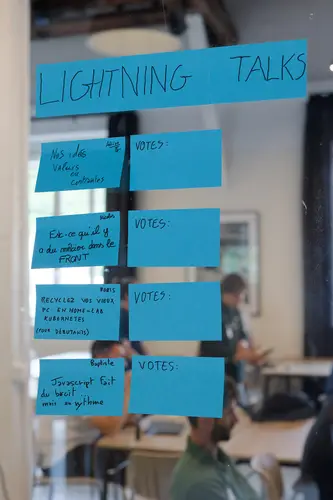 LIGHTNING TALKS
Nos idées
valeurs
ou
contraintes
VOTES:
Est-ce qu'il y
a du métier dans le
FRONT
VOTES:
RECYCLEZ VOS VIEUX
PC EN HOME-LAB
KUBERNETES
(POUR DÉBUTANTS)
VOTES:
Baptiste
Javascript fait
du bruit
mais au rythme
VOTES: